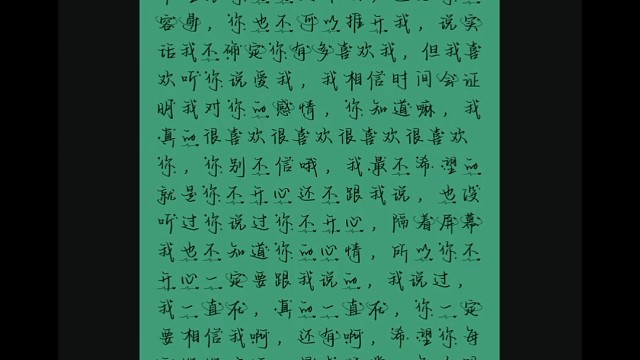 容易，你也不可以推开我，说实
话我不确定你有多喜欢我，但我喜
欢听你说爱我，我相信时间会证
明我对你的感情，你知道嘛，我
真的很喜欢很喜欢很喜欢很喜欢
你，你别不信哦，我最不希望的
就是你不开心还不跟我说，也没
听过你说过你不开心，隔着屏幕
我也不知道你的心情，所以你不
开心一定要跟我说的，我说过，
我一直在，真的一直在，你一定
要相信我啊，还有啊，希望你每